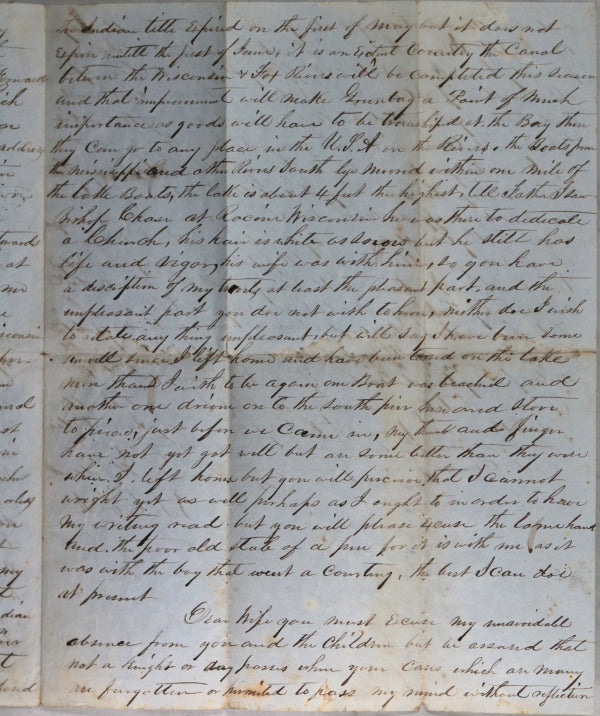 the Indian title Expired on the first of May but it does not
Expire untill the first of June, it is an Extent Country the Canal
between the Wisconsin & Fox Rivers will be completed this season
and that improvment will make Greenbay a Point of Much
importance as goods will have to be transhipd at the Bay then
they Can go to any place in the U.S.A on the Rivers. the Boats from
the Mississippi and other Rivers South lye Mored within one Mile of
the Lake Boats, the lake is about 4 feet the highest, tell Father I saw
Bishop Chase at Racine Wisconsin he was there to dedicate
a Church, his hair is white as snow but he still has
life and vigor, his wife was with him, so you have
a discription of my travels at least the pleasant part, and the
unpleasant part you doe not wish to hear, neither doe I wish
to state any thing unpleasant, but will say I have been some
unwell since I left home and have been tossed on the lake
more than I wish to be again one Boat was beached and
another one driven on to the south pier here and stove
to pieces, just before we Came in, My thumb and finger
have not yet got well but are some better than they were
when I left home but you will perceive that I cannot
wright yet as well perhaps as I ought to in order to have
My writing read but you will please Excuse the lame hand
and the poor old state of a pen for it is with me as it
was with the boy that went a Courting, the best I can doe
at present
Dear Wife you must Excuse my unavoidable
absence from you and the Children but be assured that
not a Knight or day passes when your Cares which are many
are forgotten or permited to pass my mind without reflection